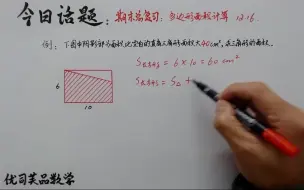 今日话题：期末总复习：多边形面积计算 12.16.
例：下图中阴影部分面积比空白的直角三角形面积大40cm²，求三角形的面积。
S长方形 = 6 × 10 = 60 cm²
6
S长方形 = S△ +
10
优司芙品数学